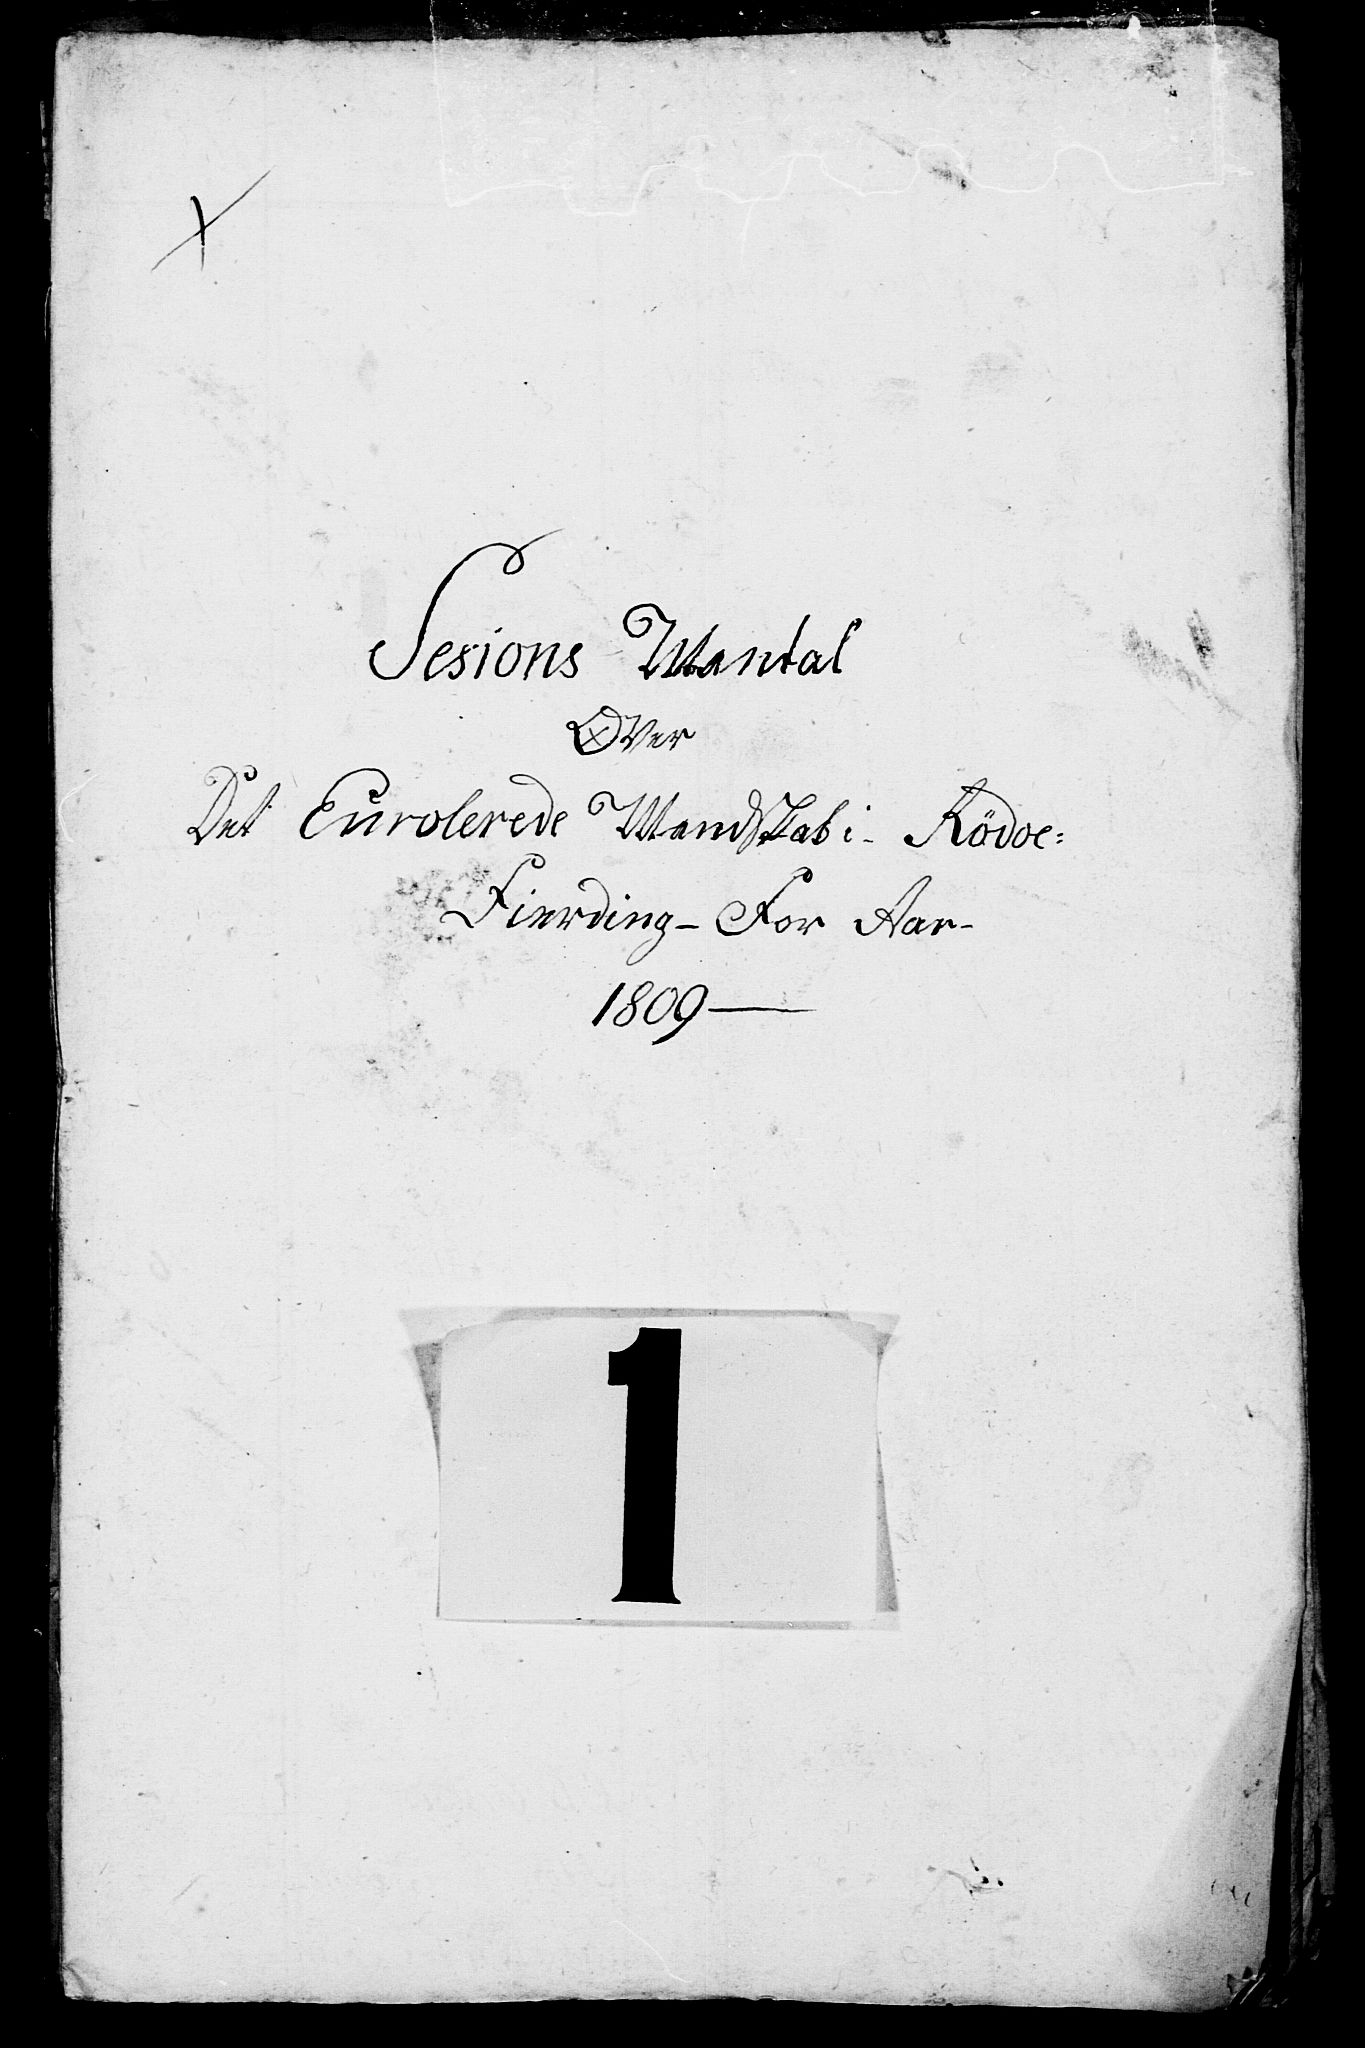 Sesions Mantal
Over
Det Eurolerede Mandskab i- Rödoe:
Fierding- For Aar-
1809
1